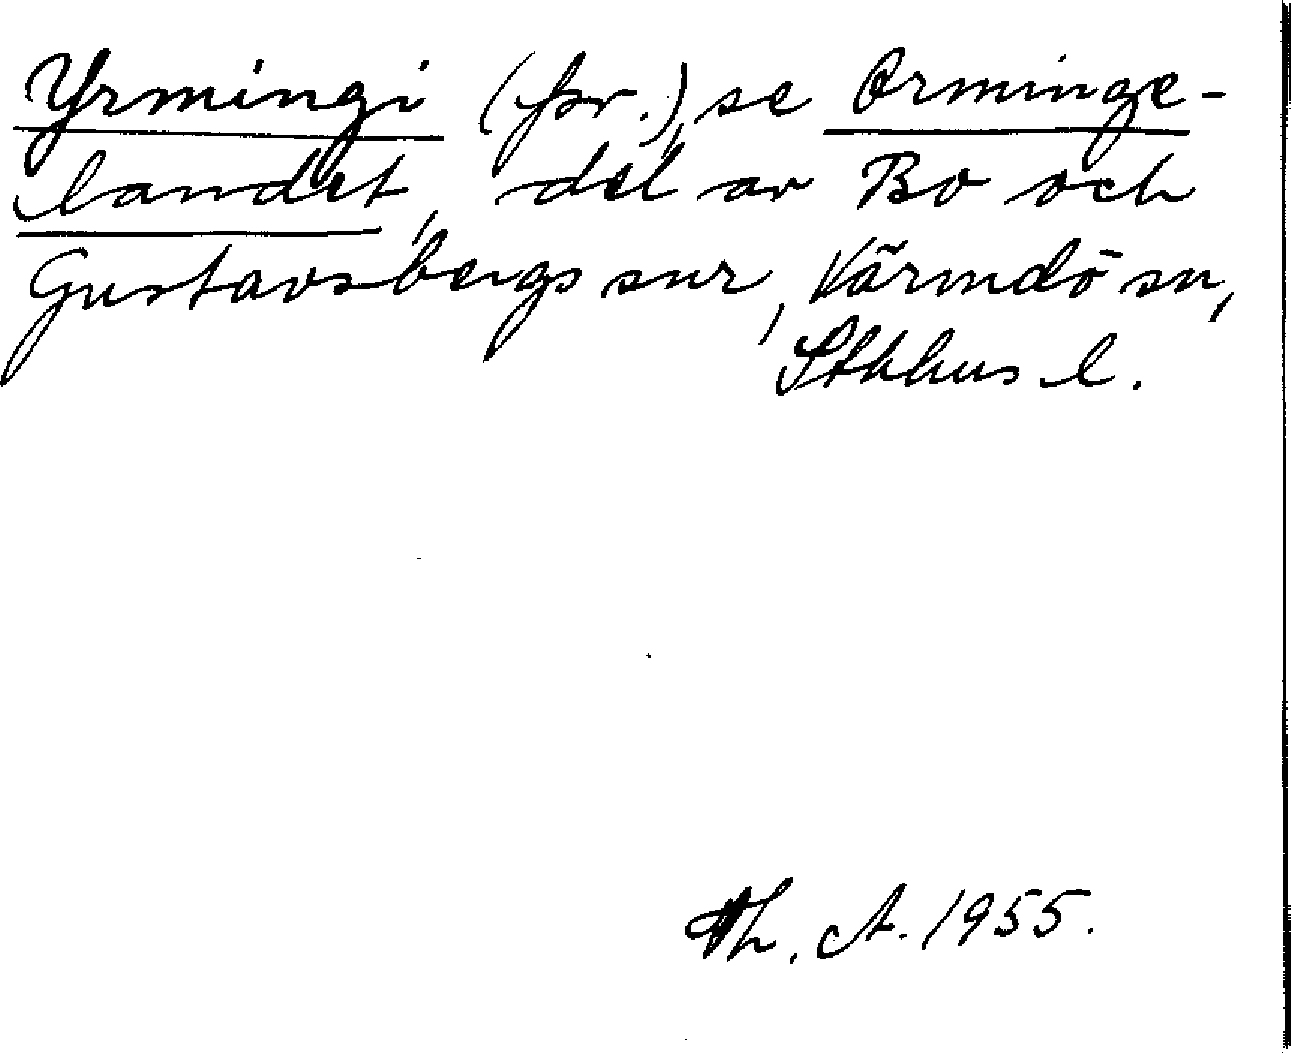 Yrmingi (fsv.), se Orminge-
landet, del av Bo och
Gustavsbergs snr, Värmdö sn,
Sthlms l.
Th. A. 1955.